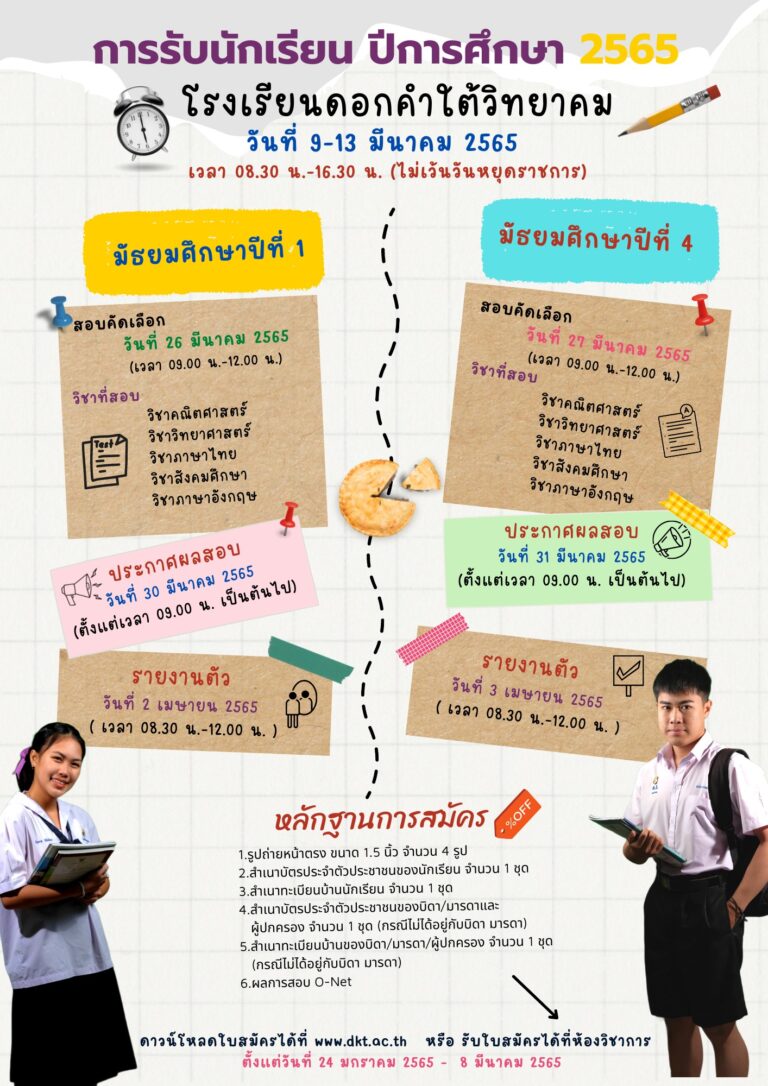 การรับนักเรียน ปีการศึกษา 2565
โรงเรียนดอกคำใต้วิทยาคม
วันที่ 9-13 มีนาคม 2565
เวลา 08.30 น.-16.30 น. (ไม่เว้นวันหยุดราชการ)
มัธยมศึกษาปีที่ 1
สอบคัดเลือก
วันที่ 26 มีนาคม 2565
(เวลา 09.00 น.-12.00 น.)
วิชาที่สอบ
วิชาคณิตศาสตร์
วิชาวิทยาศาสตร์
วิชาภาษาไทย
วิชาสังคมศึกษา
วิชาภาษาอังกฤษ
Test
ประกาศผลสอบ
วันที่ 30 มีนาคม 2565
(ตั้งแต่เวลา 09.00 น. เป็นต้นไป)
รายงานตัว
วันที่ 2 เมษายน 2565
( เวลา 08.30 น.-12.00 น. )
มัธยมศึกษาปีที่ 4
สอบคัดเลือก
วันที่ 27 มีนาคม 2565
(เวลา 09.00 น.-12.00 น.)
วิชาที่สอบ
วิชาคณิตศาสตร์
วิชาวิทยาศาสตร์
วิชาภาษาไทย
วิชาสังคมศึกษา
วิชาภาษาอังกฤษ
A
ประกาศผลสอบ
วันที่ 31 มีนาคม 2565
(ตั้งแต่เวลา 09.00 น. เป็นต้นไป)
รายงานตัว
วันที่ 3 เมษายน 2565
( เวลา 08.30 น.-12.00 น. )
หลักฐานการสมัคร
%OFF
1.รูปถ่ายหน้าตรง ขนาด 1.5 นิ้ว จำนวน 4 รูป
2.สำเนาบัตรประจำตัวประชาชนของนักเรียน จำนวน 1 ชุด
3.สำเนาทะเบียนบ้านนักเรียน จำนวน 1 ชุด
4.สำเนาบัตรประจำตัวประชาชนของบิดา/มารดาและ
ผู้ปกครอง จำนวน 1 ชุด (กรณีไม่ได้อยู่กับบิดา มารดา)
5.สำเนาทะเบียนบ้านของบิดา/มารดา/ผู้ปกครอง จำนวน 1 ชุด
(กรณีไม่ได้อยู่กับบิดา มารดา)
6.ผลการสอบ O-Net
ดาวน์โหลดใบสมัครได้ที่ www.dkt.ac.th หรือ รับใบสมัครได้ที่ห้องวิชาการ
ตั้งแต่วันที่ 24 มกราคม 2565 - 8 มีนาคม 2565